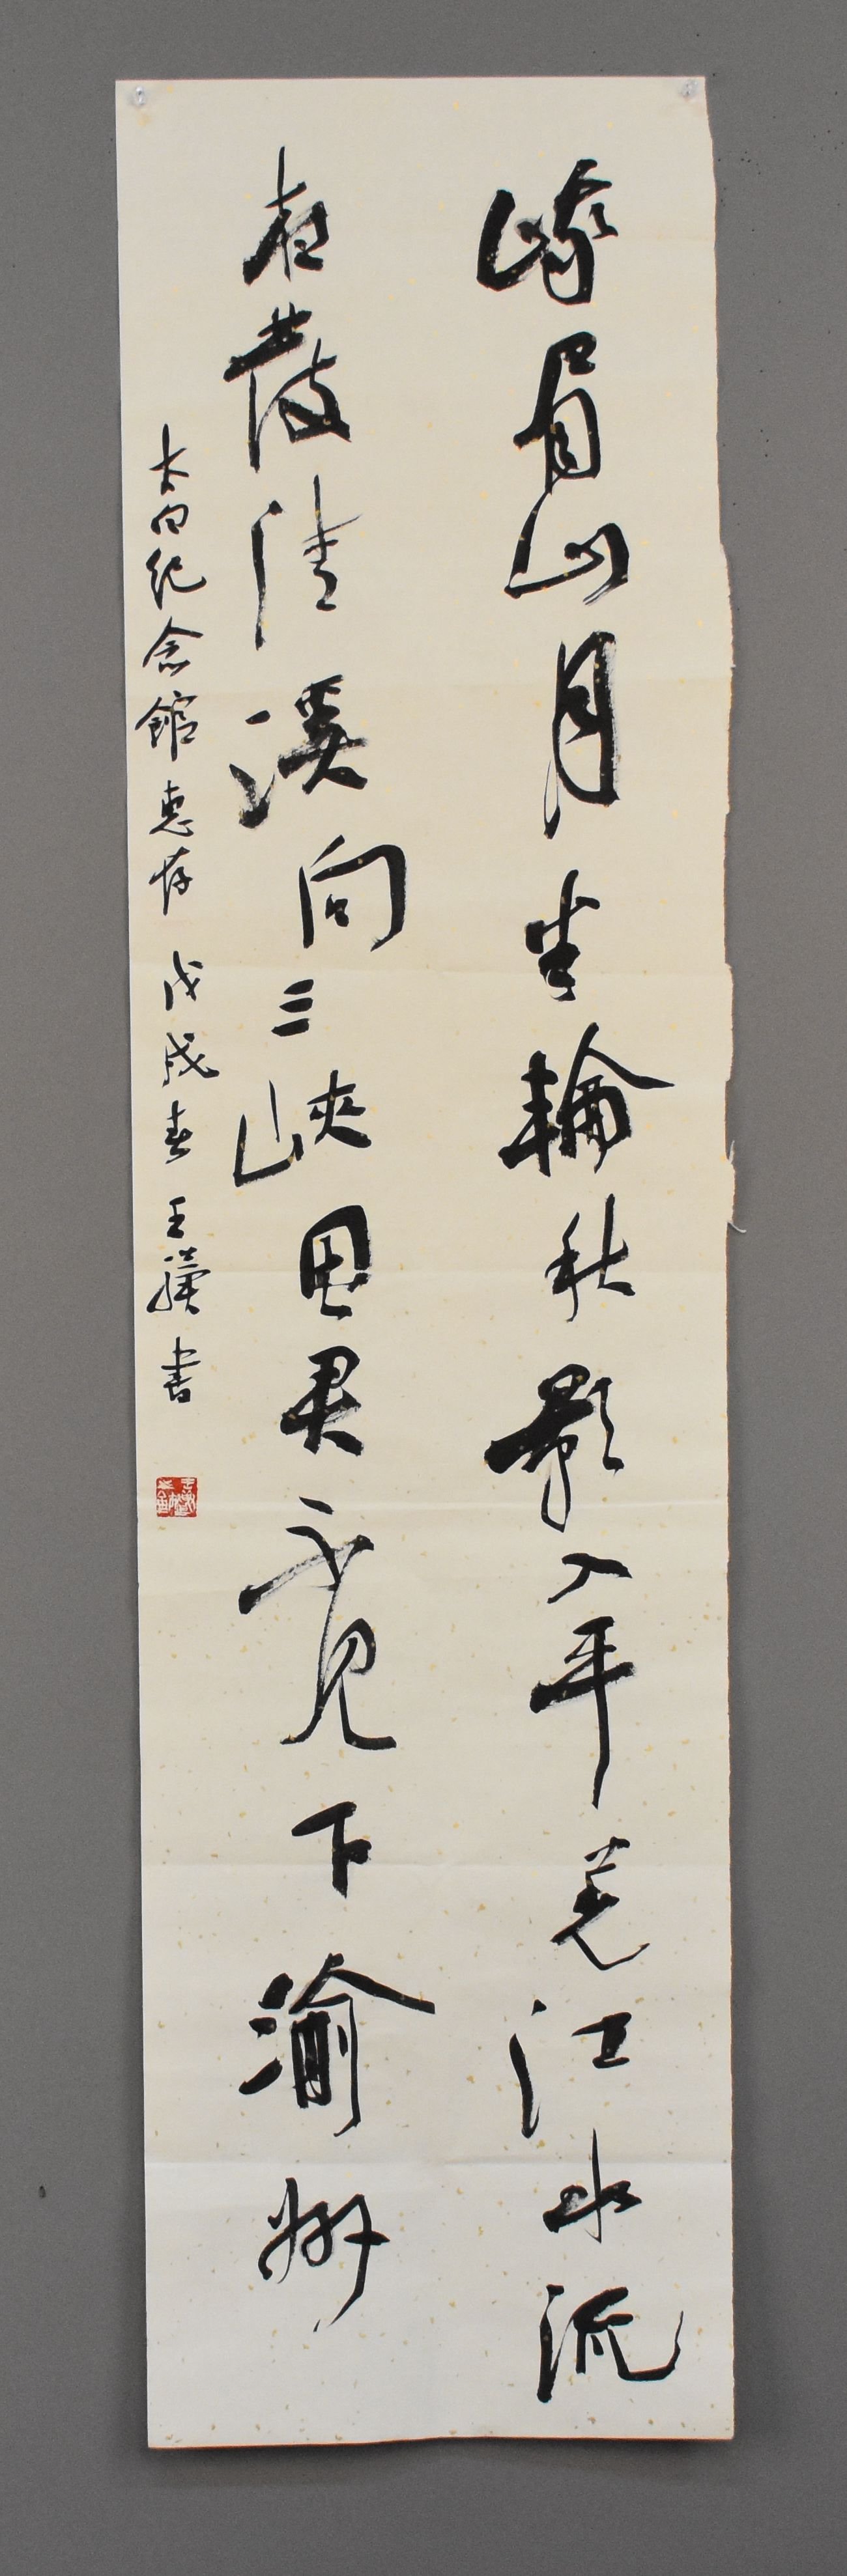 峨眉山月半輪秋影入平羌江水流
夜發清溪向三峽思君不見下渝州
太白紀念館惠存 戊戌春 王 書